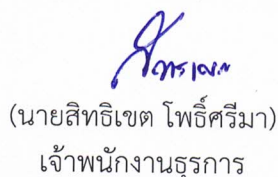 (นายสิทธิเขต โพธิ์ศรีมา)
เจ้าพนักงานธุรการ